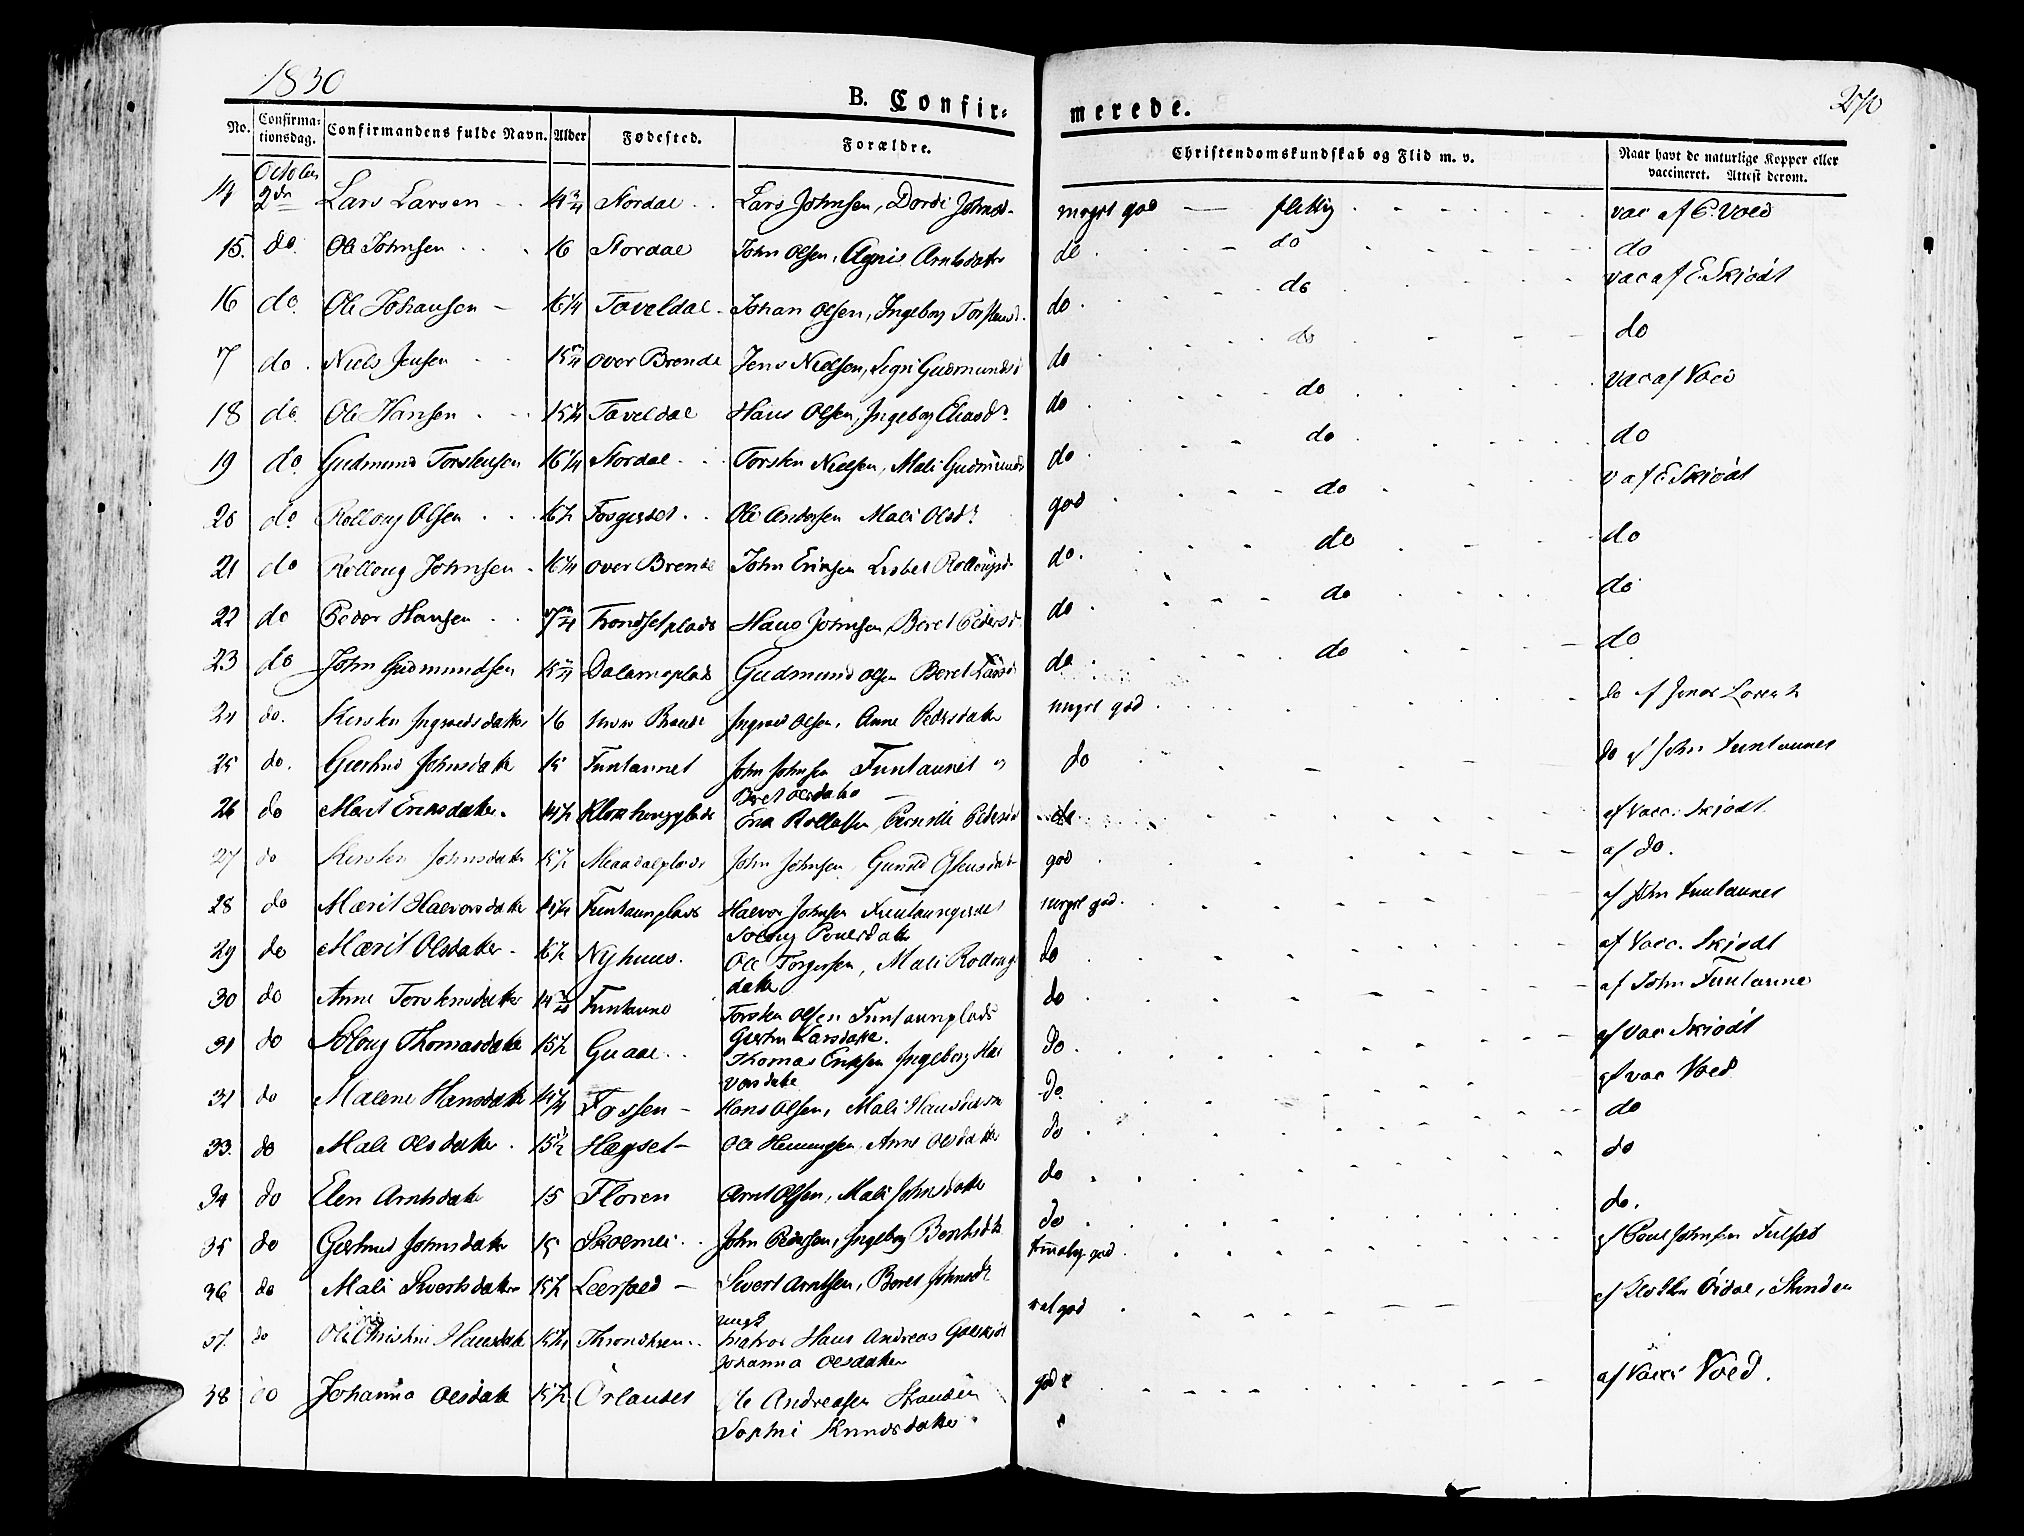 1830
B. Confir-
merede.
270
No. Confirma-tionsdag. Confirmandens fulde Navn. Alder Fødested. Forældre. Christendomskundskab og Flid m. v. Naar havt de naturlige Kopper eller vaccineret. Attest derom.
14 October 2den Lars Larsen 14 3/4 Stordal Lars Johnsen, Dordi Johnsd. meget god flittig vac af C. Voed
15. do. Ole Johnsen 16 Stordal John Olsen, Agnis Arntsdatter do do do
16 do. Ole Johansen 16 1/4 Taveldal Johan Olsen, Ingeborg Torstensd. do do vac af E. Skiødt
7 do. Niels Jensen 15 3/4 over Brende Jens Nielsen, Segri Gudmundsd do do do
18 do. Ole Hansen 15 1/4 Taveldal Hans Olsen, Ingeborg Eliasdr do do vac af Voed
19 do. Gudmund Torstensen 16 1/4 Stordal Torsten Nielsen, Mali Gudmunds do do do
20 do. Rolloug Olsen 16 1/2 Fosgerdet Ole Andersen Mali Olsdr god do v af E Skiødt
21 do Rolloug Johnsen 16 1/4 over Brende John Ericsen Lisbet Rollougsd do. do do
22 do Peder Hansen 17 3/4 Trondsetplads Hans Johnsen, Beret Pedersd do do do
23 do John Gudmundsen 15 3/4 Dalamsplads Gudmund Olsen Beret Larsd do do do
24 do. Kirsten Ingvordsdatter 16 Ingvord Olsen, Anne Pedersdatter meget god do af Lorentz
25 do. Giertrud Johnsdatter 15 Funtaunet John Johnsen Funtaunet og do do af John Funtaunet
Beret Olsdatter
26 do Marit Ericksdatter. 14 1/2 Erick Rollofsen, Pernille Pedersd do af Vacc. Skiødt
27 do Kirsten Johnsdatter 15 1/2 Meaadalplads John Johnsen, Gunild god af do.
28 do Marit Halvorsdatter Funtaunplads Halvor Johnsen Funtaungerdet meget god. af John Funtaunet
Soloug Povelsdatter
29 do Marit Olsdatter 16 1/2 Nyhuus. Ole Torgersen, Mali Rolloug do af Vacc. Skiødt
datter
30 do Anne Torstensdatter 14 3/4 Funtaune Torsten Olsen Funtaunplads do af John Funtaune
Giertru Larsdatter.
31 do Solloug Thomasdatter 15 1/2 Guaae Thomas Ericksen Ingeborg Hal do af Vac Skiødt
vorsdatter
32 do Malene Hansdatter Fossen Hans Olsen, Mali Hansdatter do af vac Voed
33. do Mali Olsdatter 15 1/2 Hægset Ole Hemmingsen Anne Olsdatter do do
34 do Elen Arntsdatter 15 Floren Arnt Olsen, Mali Johnsdatter do do
35 do Giertrud Johnsdatter 15 John Pedersen, Ingeborg Berntsdtr do do.
36 do Mali Sivertsdatter 15 1/2 Leerfald Sivert Arntsen, Beret Johnsdr temelig god af Povel Johnsen
37. do Ole Christine Hansdatter 15 3/4 Throndhiem Hans Andreas vel god af Øidal, Stenden
Johanna Olsdatter
38 do Johanna Olsdatter 15 1/2 Ørlandet Ole Andreasen Stranden god af Vacc Voed.
Sophie Knudsdatter